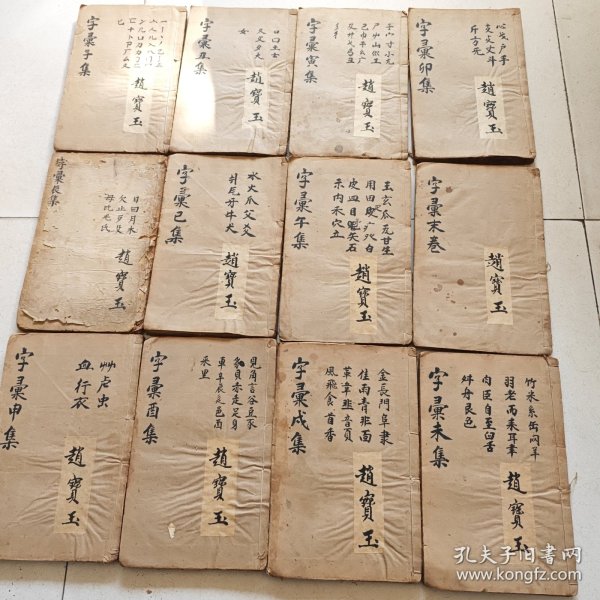 字彙子集
趙寶玉
字彙丑集
口囗土士
夂夊夕大
女
趙寶玉
字彙寅集
子宀寸小尢
尸屮山巛工
己巾干幺广
廴廾弋弓彐
彡彳
趙寶玉
字彙卯集
心戈戶手
支攴文斗
斤方无
趙寶玉
字彙辰集
日曰月木
欠止歹殳
毋比毛氏
趙寶玉
字彙巳集
水火爪父爻
爿片牙牛犬
趙寶玉
字彙午集
玉玄瓜瓦甘生
用田疋疒癶白
皮皿目矛矢石
示禸禾穴立
趙寶玉
字彙末卷
趙寶玉
字彙申集
艸虍虫
血行衣
趙寶玉
字彙酉集
見角言谷豆豕
豸貝赤走足身
車辛辰辵邑酉
釆里
趙寶玉
字彙戌集
金長門阜隶
隹雨青非面
革韋韭音頁
風飛食首香
趙寶玉
字彙未集
竹米糸缶网羊
羽老而耒耳聿
肉臣自至臼舌
舛舟艮色
趙寶玉
孔夫子旧书网
www.kongfz.com